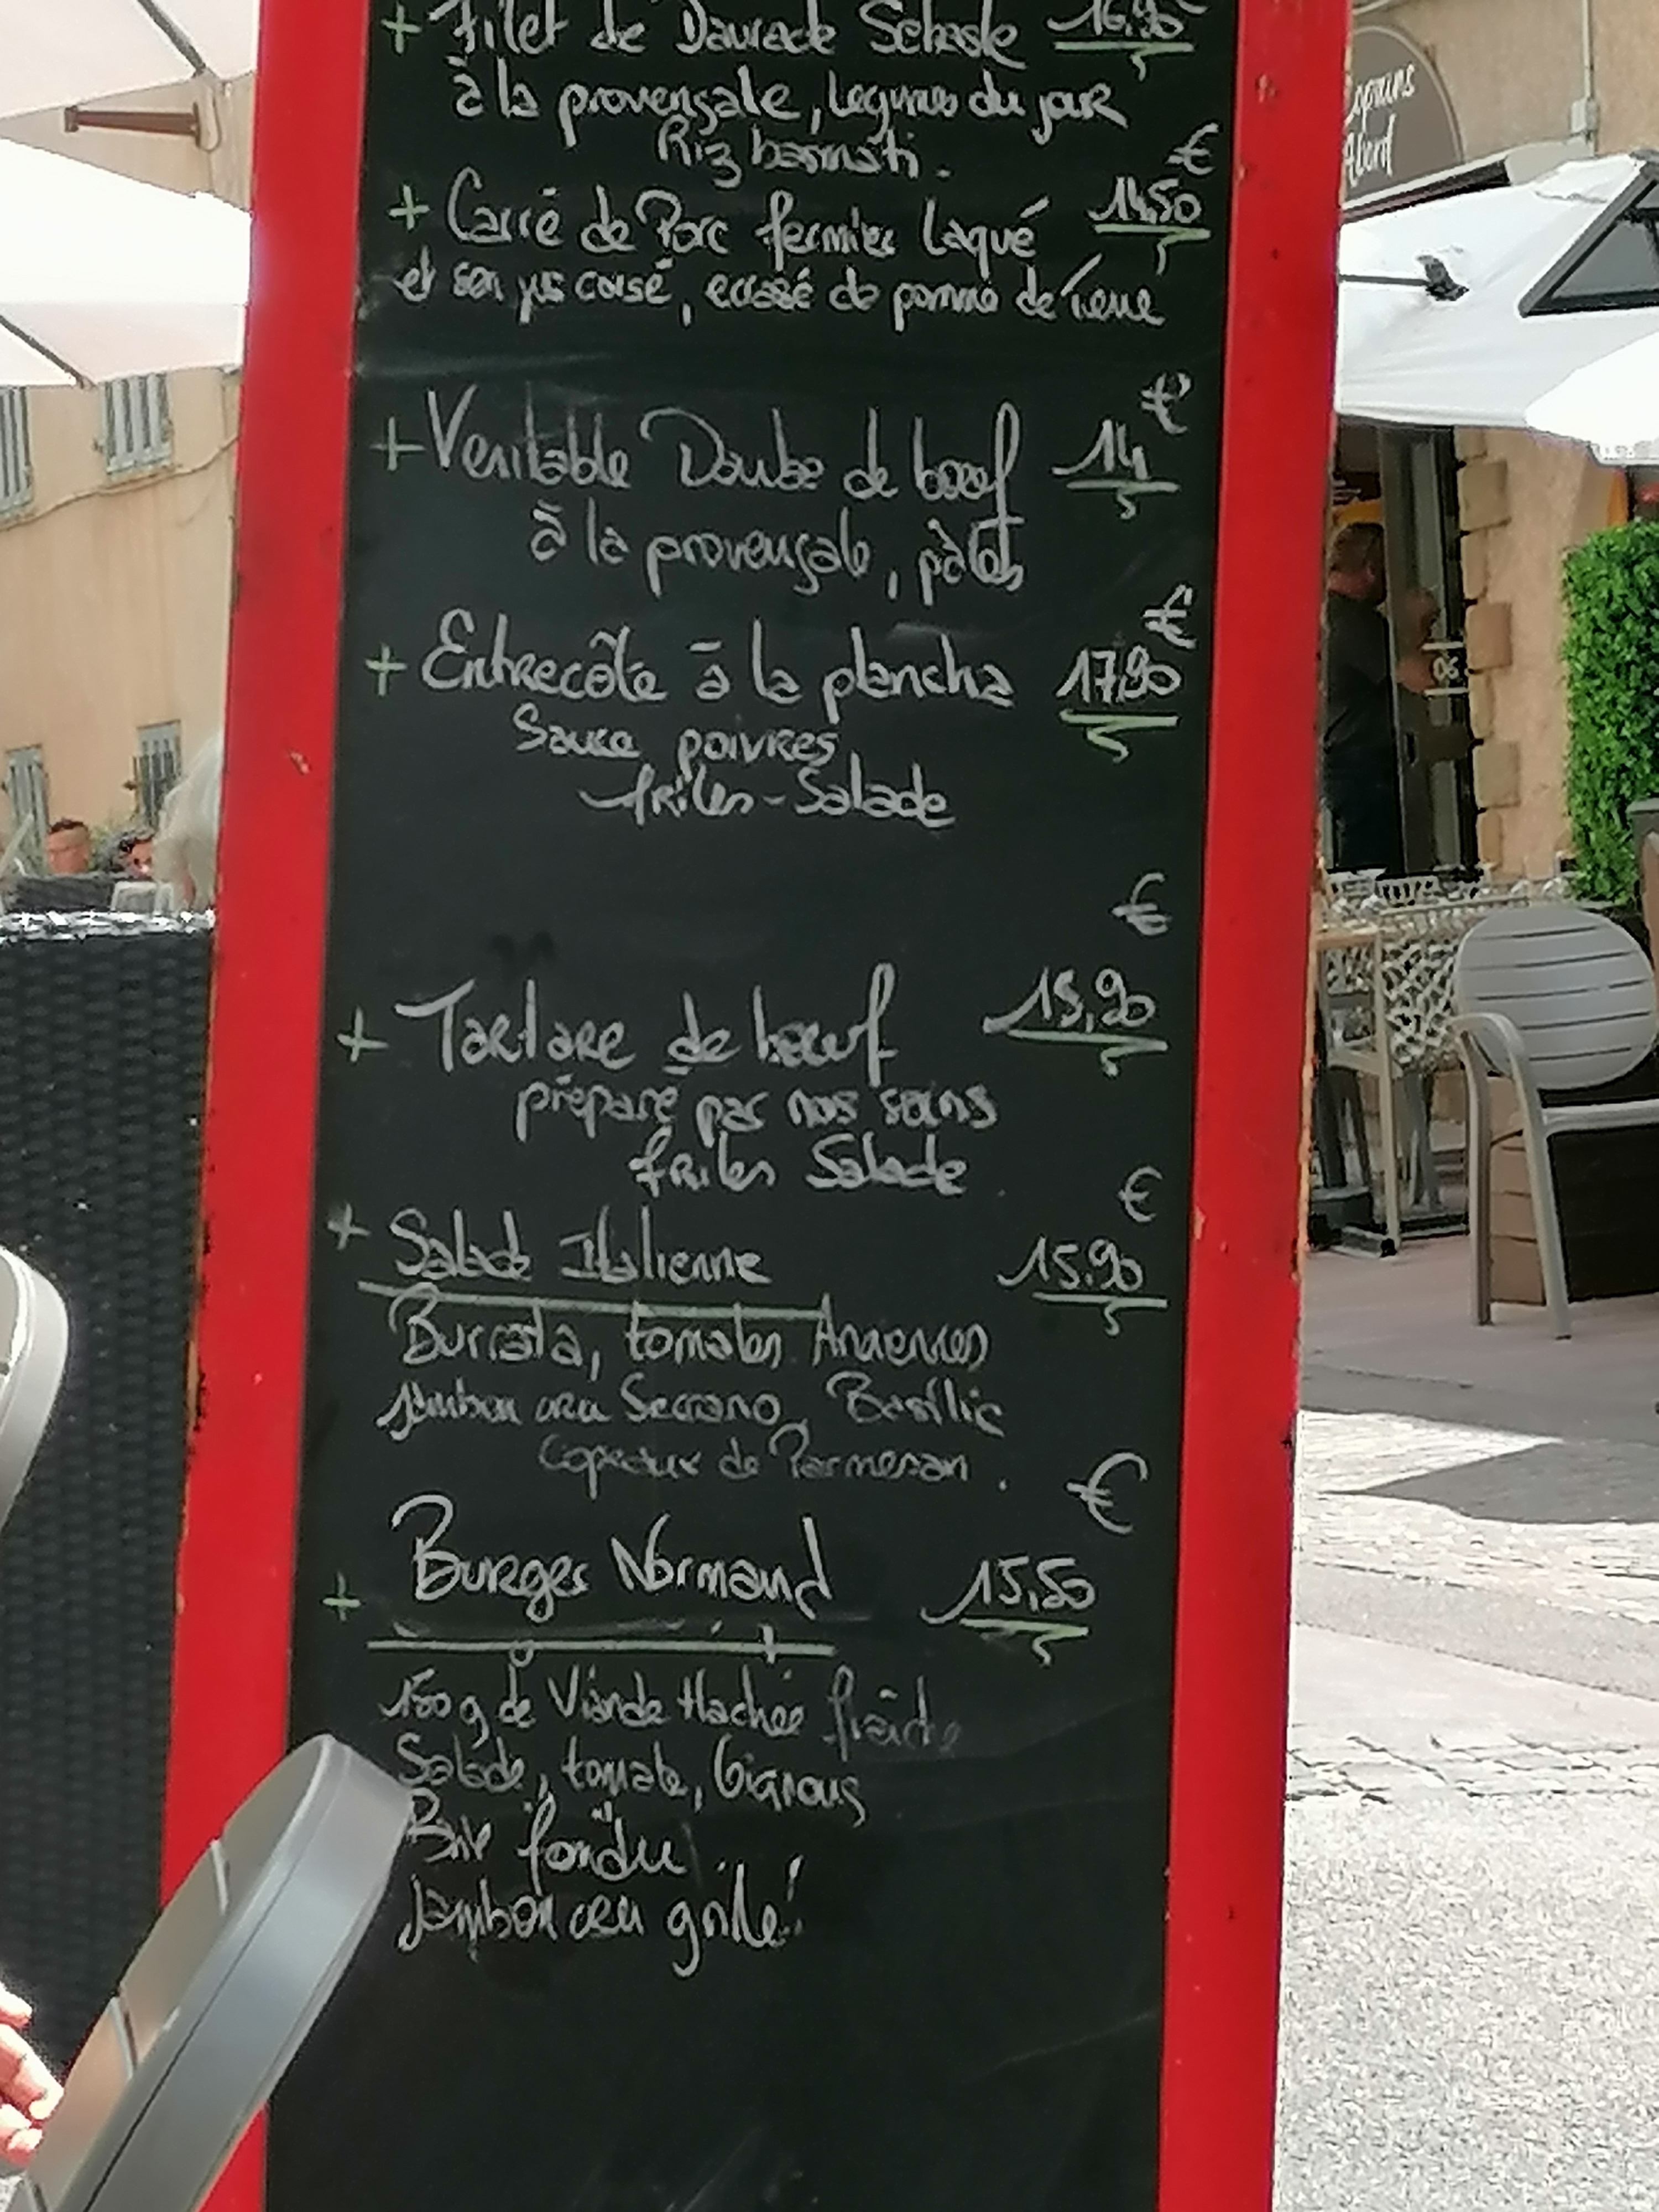 + Filet de Daurade Sebaste 16,90
à la provençale, légumes du jour
Riz basmati.
€
+ Carré de Porc fermier laqué 14,50
et son jus corsé, ecrasé de pomme de Terre
€
+ Veritable Daube de boeuf 14
à la provençale, pâtes
€
+ Entrecôte à la plancha 17,90
Sauce poivres
frites - Salade
€
+ Tartare de boeuf 15,90
préparé par nos soins
frites Salade
€
+ Salade Italienne 15.90
Burrata, tomates Anciennes
Jambon cru Serrano, Basilic
Copeaux de Parmesan.
€
+ Burger Normand 15,50
150g de Viande Hachée fraîche
Salade, tomate, Oignons
Brie fondu
Jambon cru grillé!
Abord